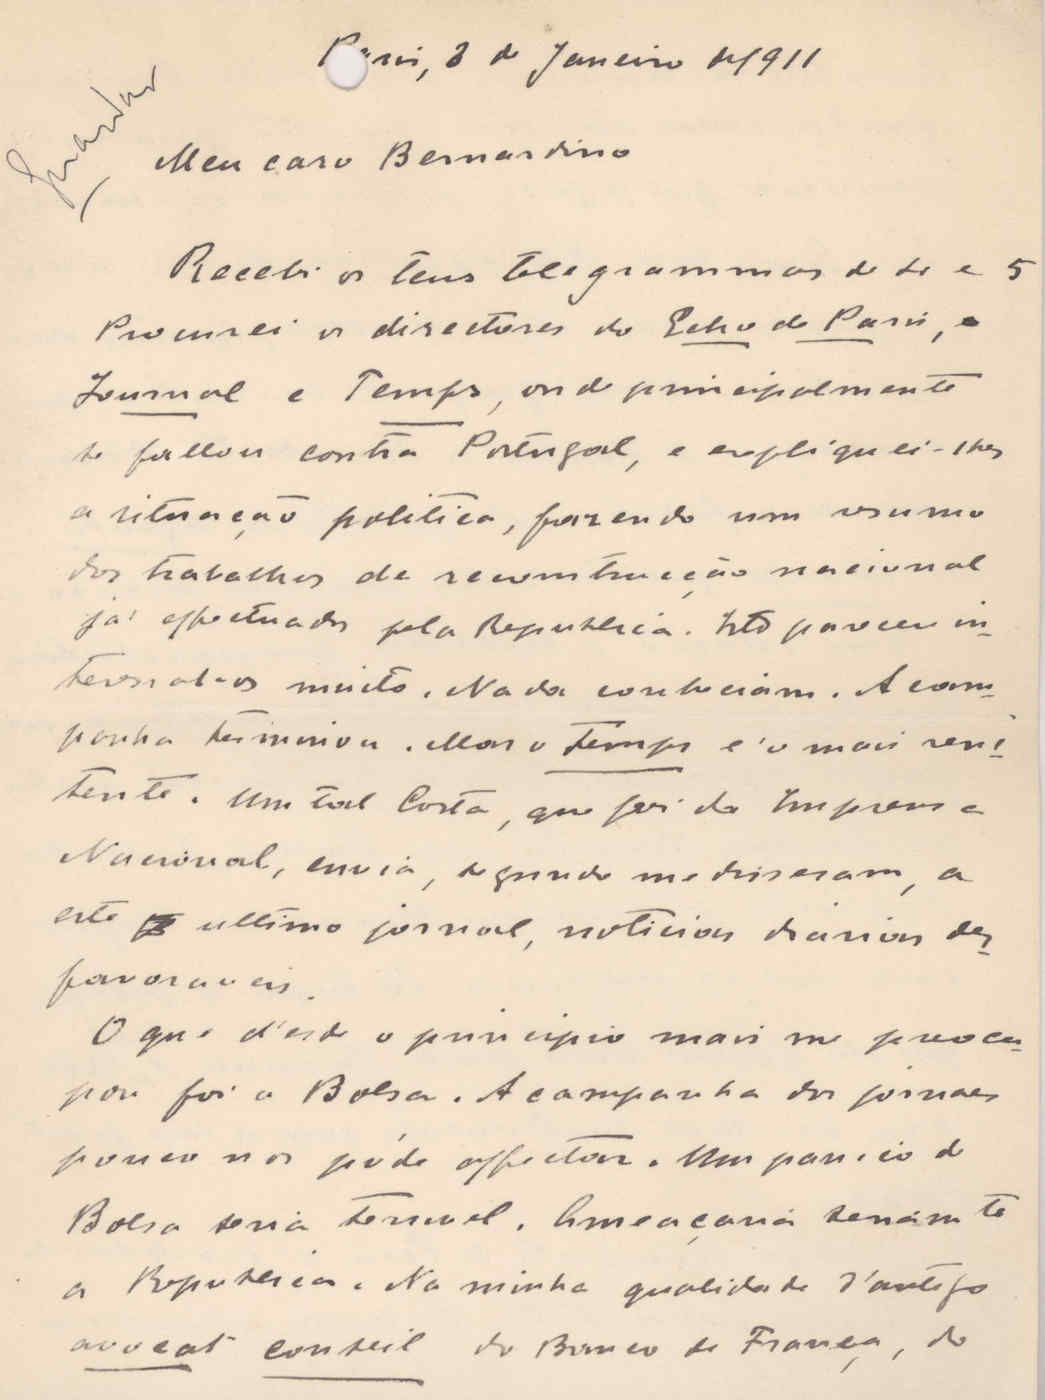 Paris, 8 de Janeiro de 1911
Guardar
Meu caro Bernardino
Recebi os teus telegrammas de 4 e 5
Procurei os directores do Echo de Paris, o
Journal e Temps, onde principalmente
se fallou contra Portugal, e expliquei-lhes
a situação politica, fazendo um resumo
dos trabalhos de reconstrucção nacional
já effectuados pela Republica. Isto pareceu in-
teressal-os muito. Nada conheciam. A cam-
panha terminou. Mas o Temps é o mais reni-
tente. Um tal Costa, que foi da Imprensa
Nacional, envia, segundo me disseram, a
este ultimo jornal, noticias diarias des-
favoraveis.
O que d'esde o principio mais me preoccu-
pou foi a Bolsa. A campanha dos jornaes
pouco nos póde affectar. Um panico de
Bolsa seria terrivel. Ameaçaria seriamte
a Republica. Na minha qualidade d'antigo
avocat conseil do Banco de França, do